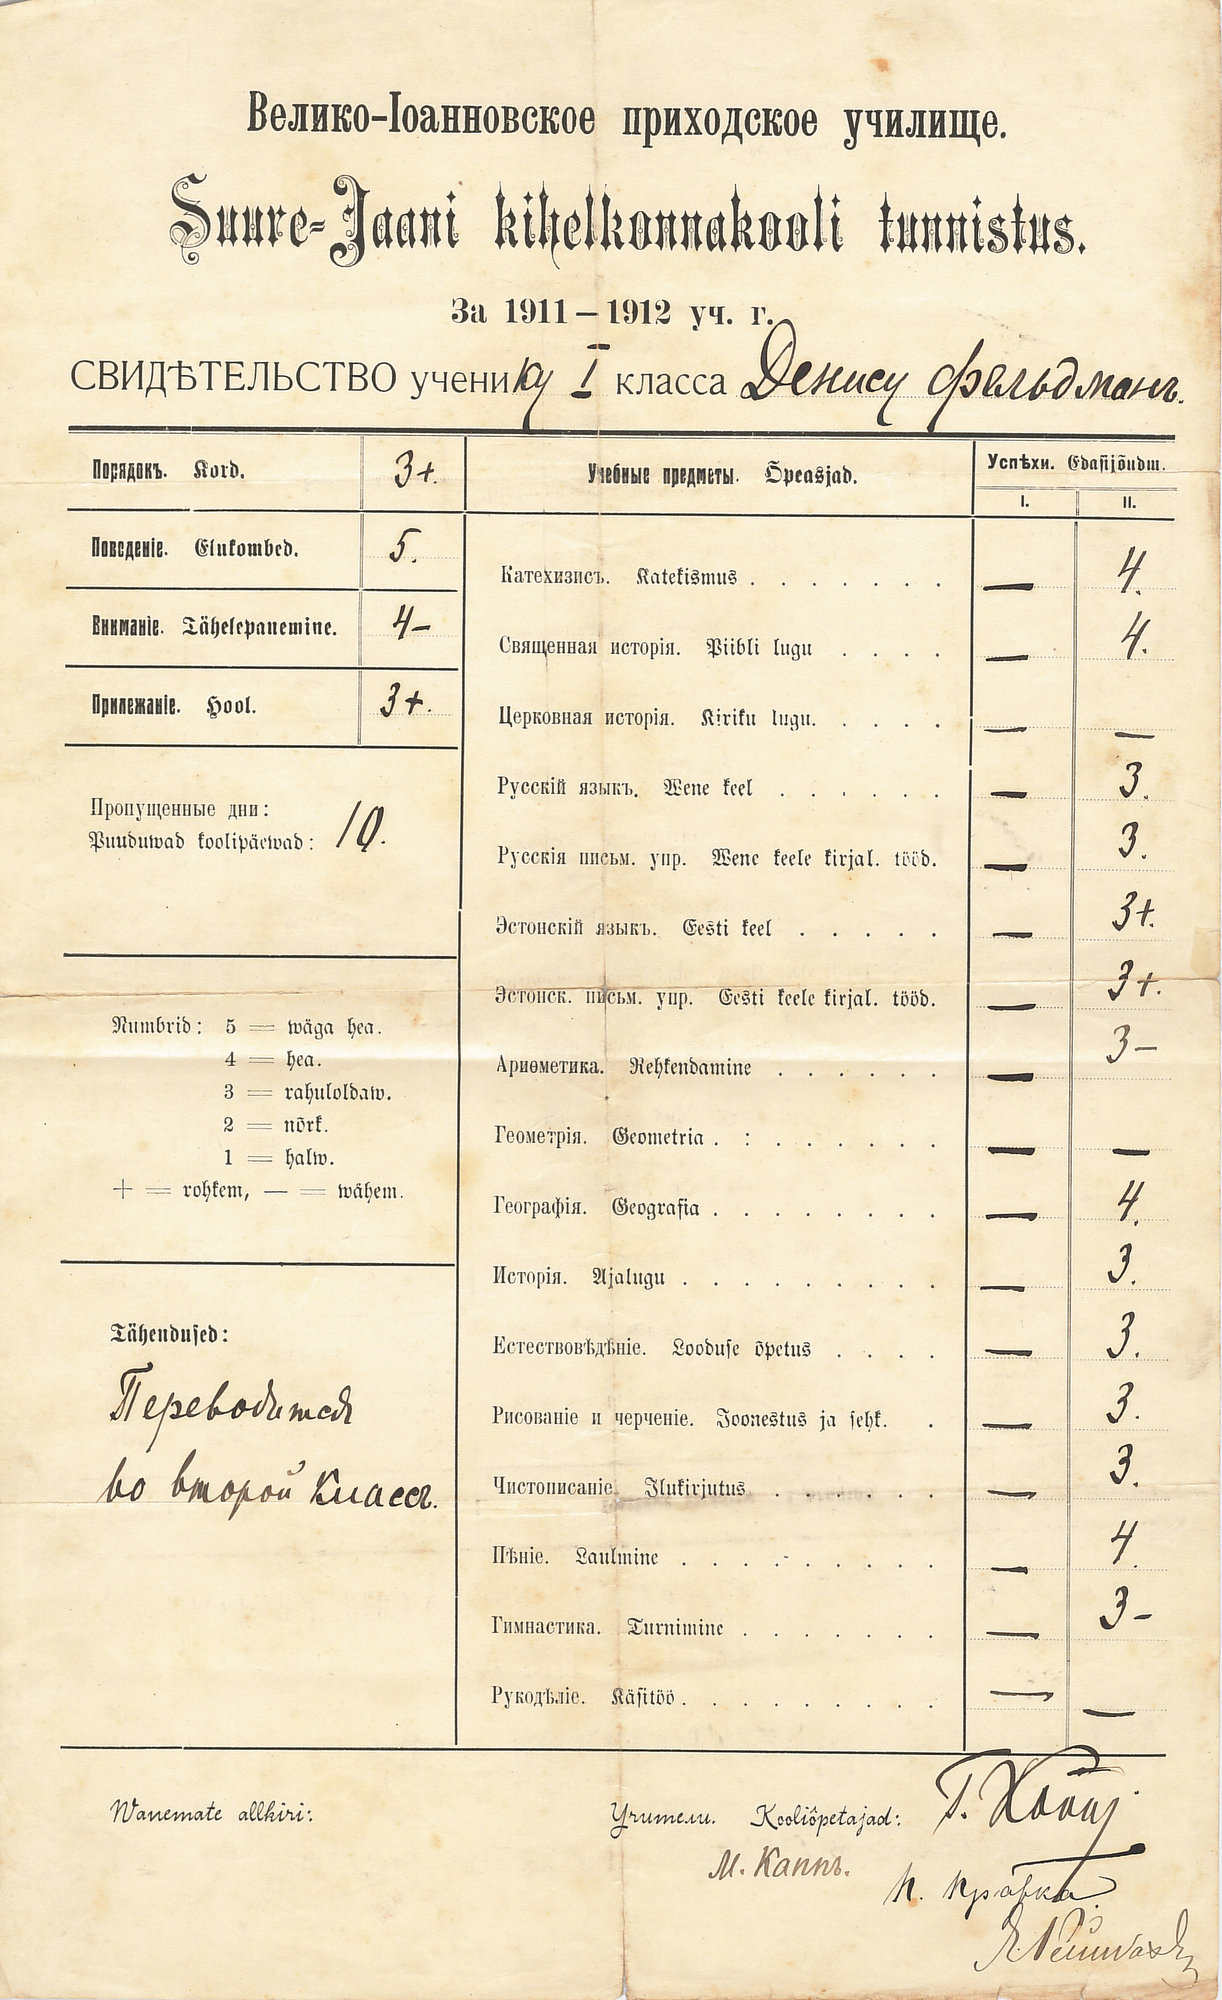 Велико-Іоанновское приходское училище.
Suure-Jaani kihelkonnakooli tunnistus.
За 1911—1912 уч. г.
СВИДѢТЕЛЬСТВО ученику I класса Денису Фельдманъ.
Порядокъ. Kord. 3+.
Поведеніе. Elukombed. 5.
Вниманіе. Tähelepanemine. 4—
Прилежаніе. Hool. 3+.
Пропущенные дни:
Puuduwad koolipäewad: 10.
Numbrid: 5 = wäga hea.
4 = hea.
3 = rahuloldaw.
2 = nõrk.
1 = halw.
+ = rohkem, — = wähem.
Tähendused:
Переводится
во второй классъ.
Учебные предметы. Õpeasjad. Успѣхи. Edasijõudm.
I. II.
Катехизисъ. Katekismus . . . . . . . — 4.
Священная исторія. Piibli lugu . . . . — 4.
Церковная исторія. Kiriku lugu. . . . . — —
Русскій языкъ. Wene keel . . . . . . — 3.
Русскія письм. упр. Wene keele kirjal. tööd. — 3.
Эстонскій языкъ. Eesti keel . . . . . — 3+.
Эстонск. письм. упр. Eesti keele kirjal. tööd. — 3+.
Ариѳметика. Rehkendamine . . . . . . — 3—
Геометрія. Geometria . : . . . . . . — —
Географія. Geografia . . . . . . . . — 4.
Исторія. Ajalugu . . . . . . . . . — 3.
Естествовѣдѣніе. Looduse õpetus . . . . — 3.
Рисованіе и черченіе. Joonestus ja sehk. . — 3.
Чистописаніе. Ilukirjutus . . . . . . — 3.
Пѣніе. Laulmine . . . . . . . . . — 4.
Гимнастика. Turnimine . . . . . . . — 3—
Рукодѣліе. Käsitöö . . . . . . . . . — —
Wanemate allkiri:
Учители. Kooliõpetajad:
М. Каппъ.